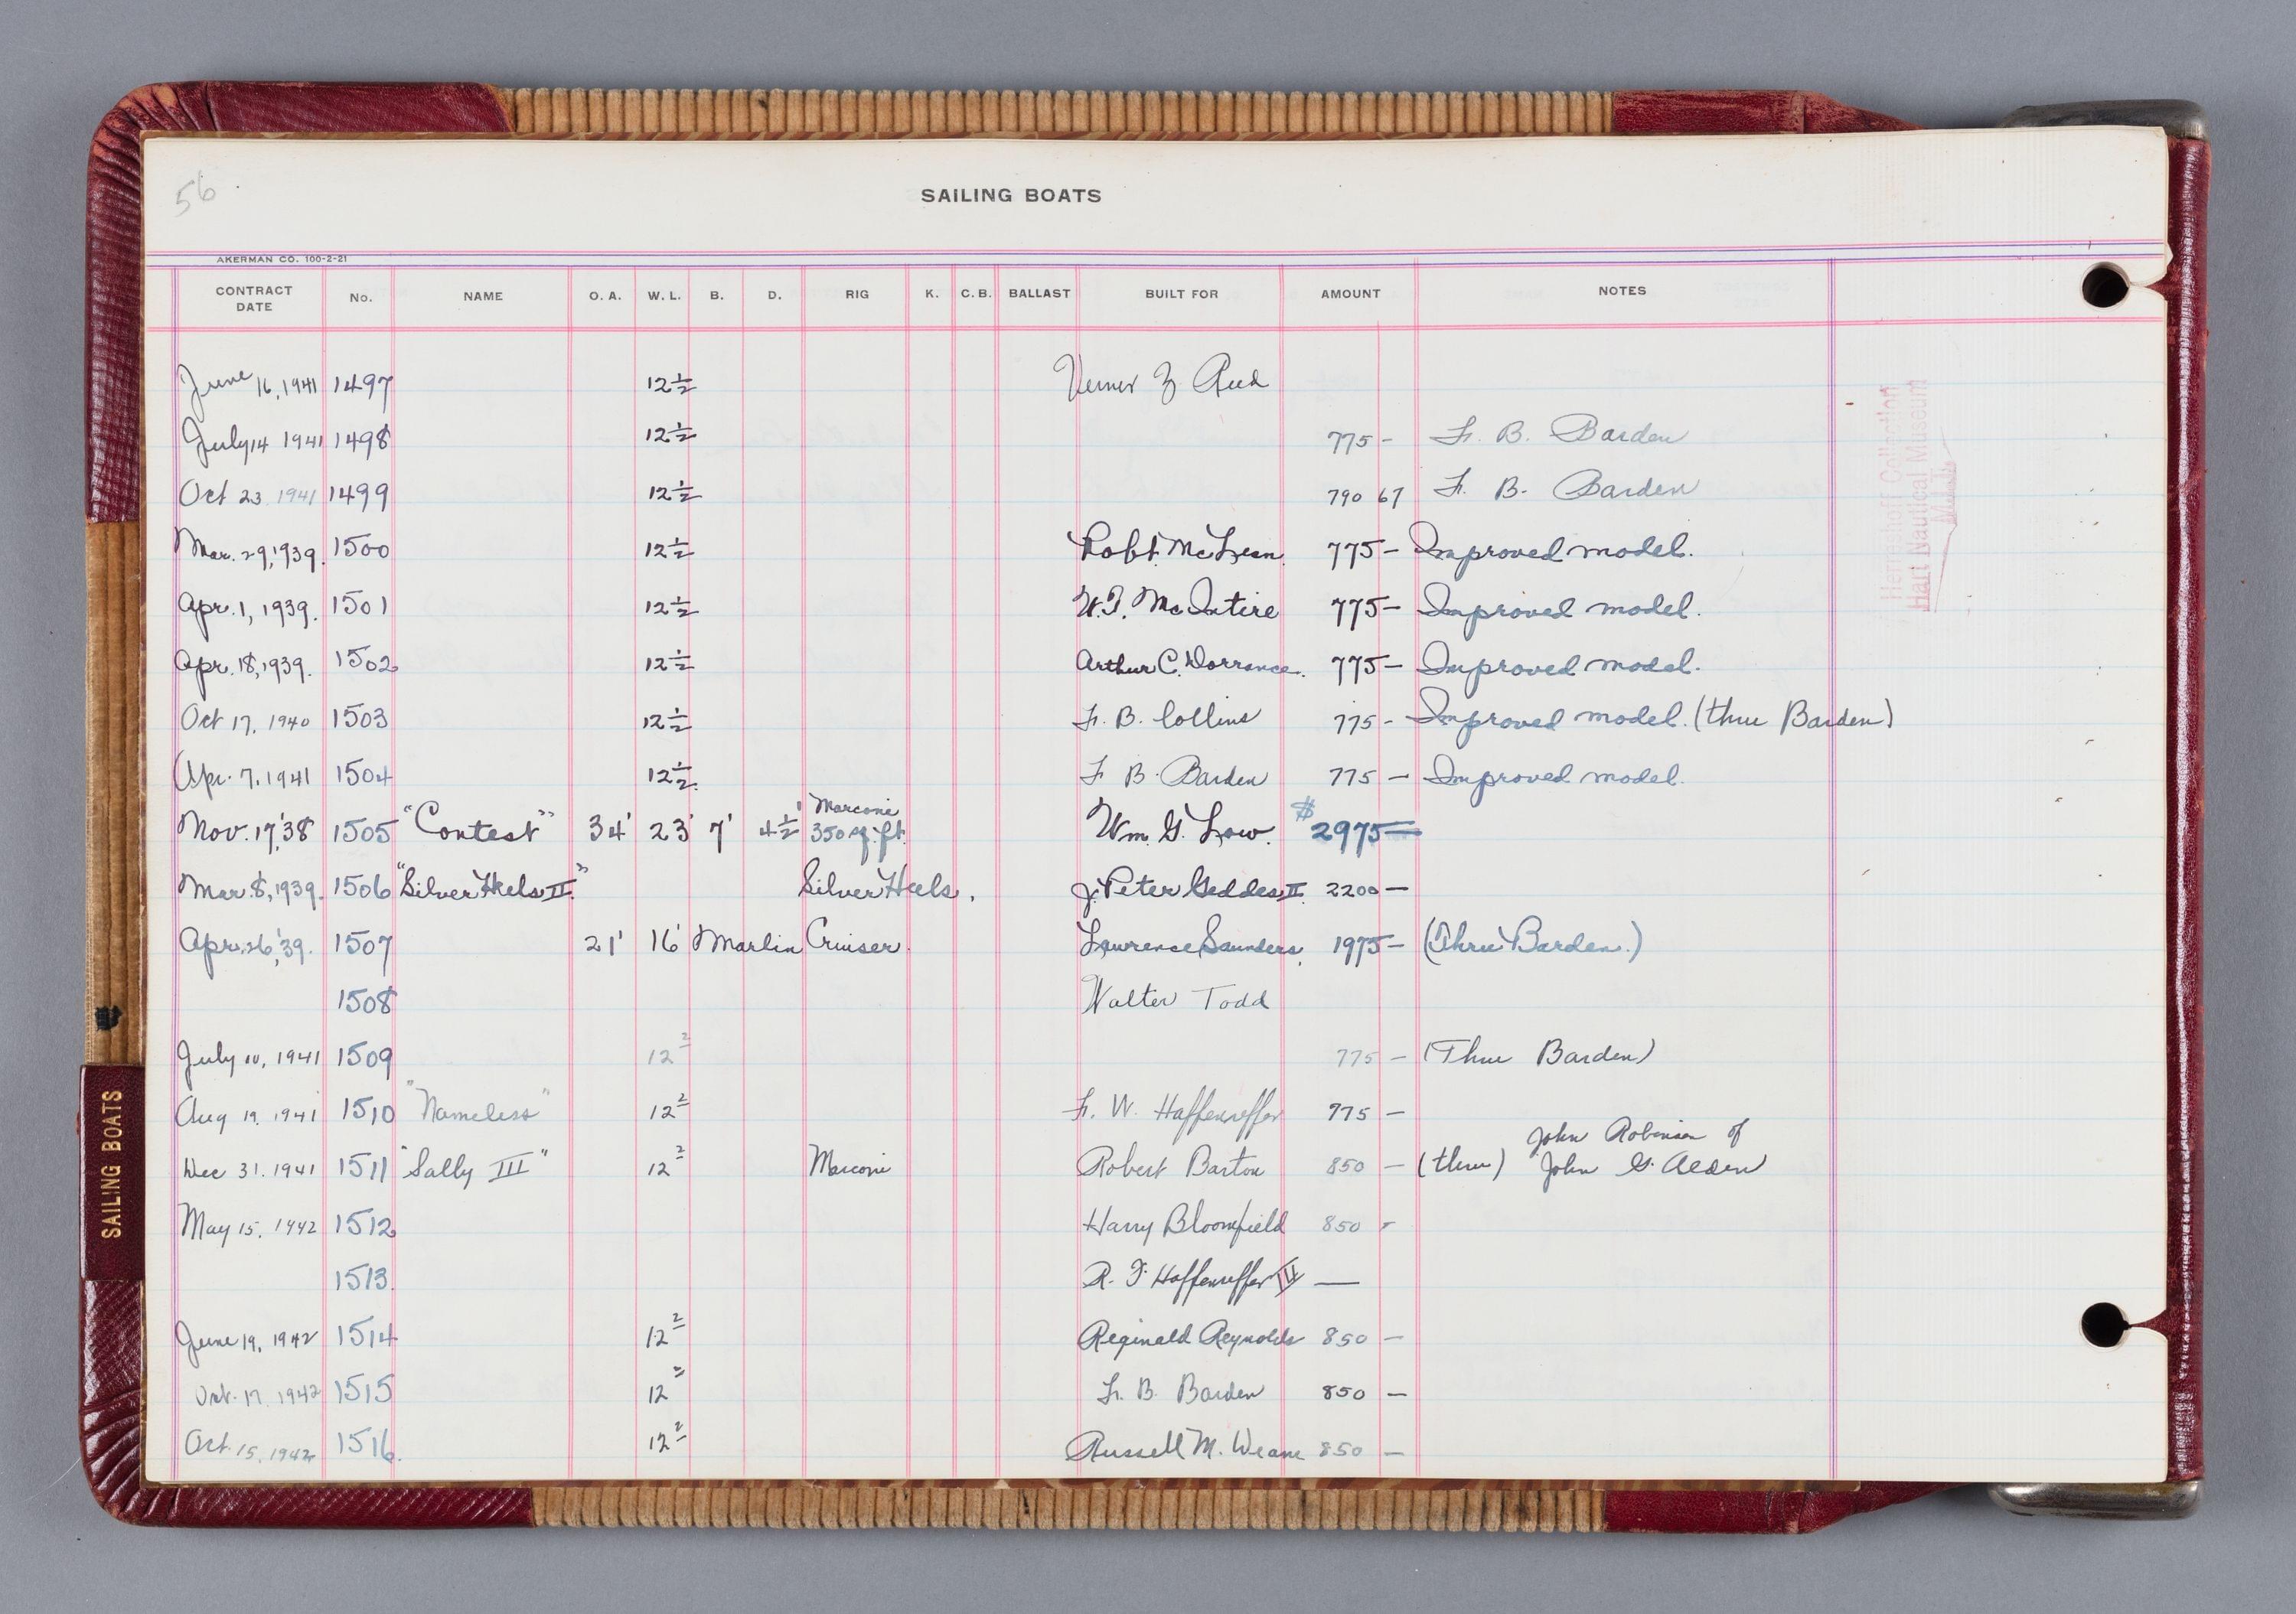 56
SAILING BOATS
AKERMAN CO. 100-2-21
CONTRACT DATE No. NAME O. A. W. L. B. D. RIG K. C. B. BALLAST BUILT FOR AMOUNT NOTES
June 16, 1941 1497 12 1/2 Verner Z Reed
July 14 1941 1498 12 1/2 775 - F. B. Barden
Oct 23 1941 1499 12 1/2 790 67 F. B. Barden
Mar. 29, 1939. 1500 12 1/2 Robt. McLean. 775 - Improved model.
Apr. 1, 1939. 1501 12 1/2 McIntire 775 - Improved model.
Apr. 18, 1939. 1502 12 1/2 Arthur C. Dorrance. 775 - Improved model.
Oct 17, 1940 1503 12 1/2 F. B. Collins 775 - Improved model. (thru Barden)
Apr. 7, 1941 1504 12 1/2 F B. Barden 775 - Improved model.
Nov. 17, '38 1505 "Contest" 34' 23' 7' 4 1/2' Marconi 350 sq. ft. Wm. G. Low. $2975 =
Mar. 8, 1939. 1506 "Silver Heels II." Silver Heels. J. Peter Geddes II. 2200 -
Apr. 26, '39. 1507 21' 16' Marlin Cruiser. Lawrence Saunders. 1975 - (Thru Barden.)
1508 Walter Todd
July 10, 1941 1509 12 2 775 - (Thru Barden)
Aug 19, 1941 1510 "Nameless" 12 2 F. W. Haffenreffer 775 -
John Robinson of
Dec 31. 1941 1511 "Sally III" 12 2 Marconi Robert Barton 850 - (thru) John G. Alden
May 15, 1942 1512 Harry Bloomfield 850 -
1513. R. F. Haffenreffer —
June 19, 1942 1514 12 2 Reginald Reynolds 850 -
Oct. 17, 1942 1515 12 2 F. B. Barden 850 -
Oct. 15, 1942 1516. 12 2 Russell M. 850 -
Herreshoff Collection
Hart Nautical Museum
SAILING BOATS